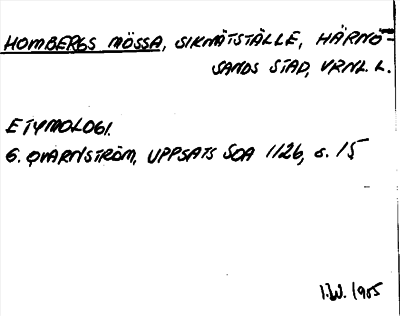 HOMBERGS MÖSSA, SIKNÄTSTÄLLE, HÄRNÖ=
SANDS STAD, VRNL. L.
ETYMOLOGI.
G. QVARNSTRÖM, UPPSATS SOA 1126, s. 15
I.W. 1985